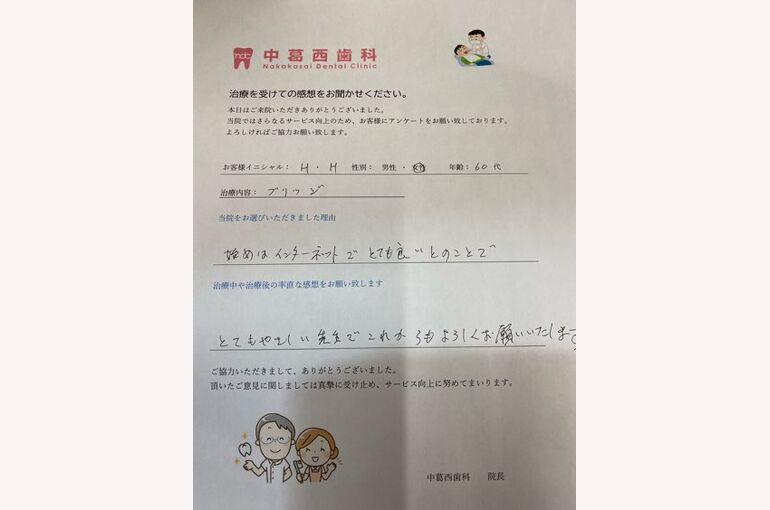 ndc
中葛西歯科
Nakakasai Dental Clinic
治療を受けての感想をお聞かせください。
本日はご来院いただきありがとうございました。
当院ではさらなるサービス向上のため、お客様にアンケートをお願い致しております。
よろしければご協力お願い致します。
お客様イニシャル： H ・ H 性別： 男性 ・ 女性 年齢：60 代
治療内容： ブリッジ
当院をお選びいただきました理由
始めはインターネットで とても良いとのことで
治療中や治療後の率直な感想をお願い致します
とてもやさしい先生で これからもよろしくお願いいたします。
ご協力いただきまして、ありがとうございました。
頂いたご意見に関しましては真摯に受け止め、サービス向上に努めてまいります。
中葛西歯科 院長